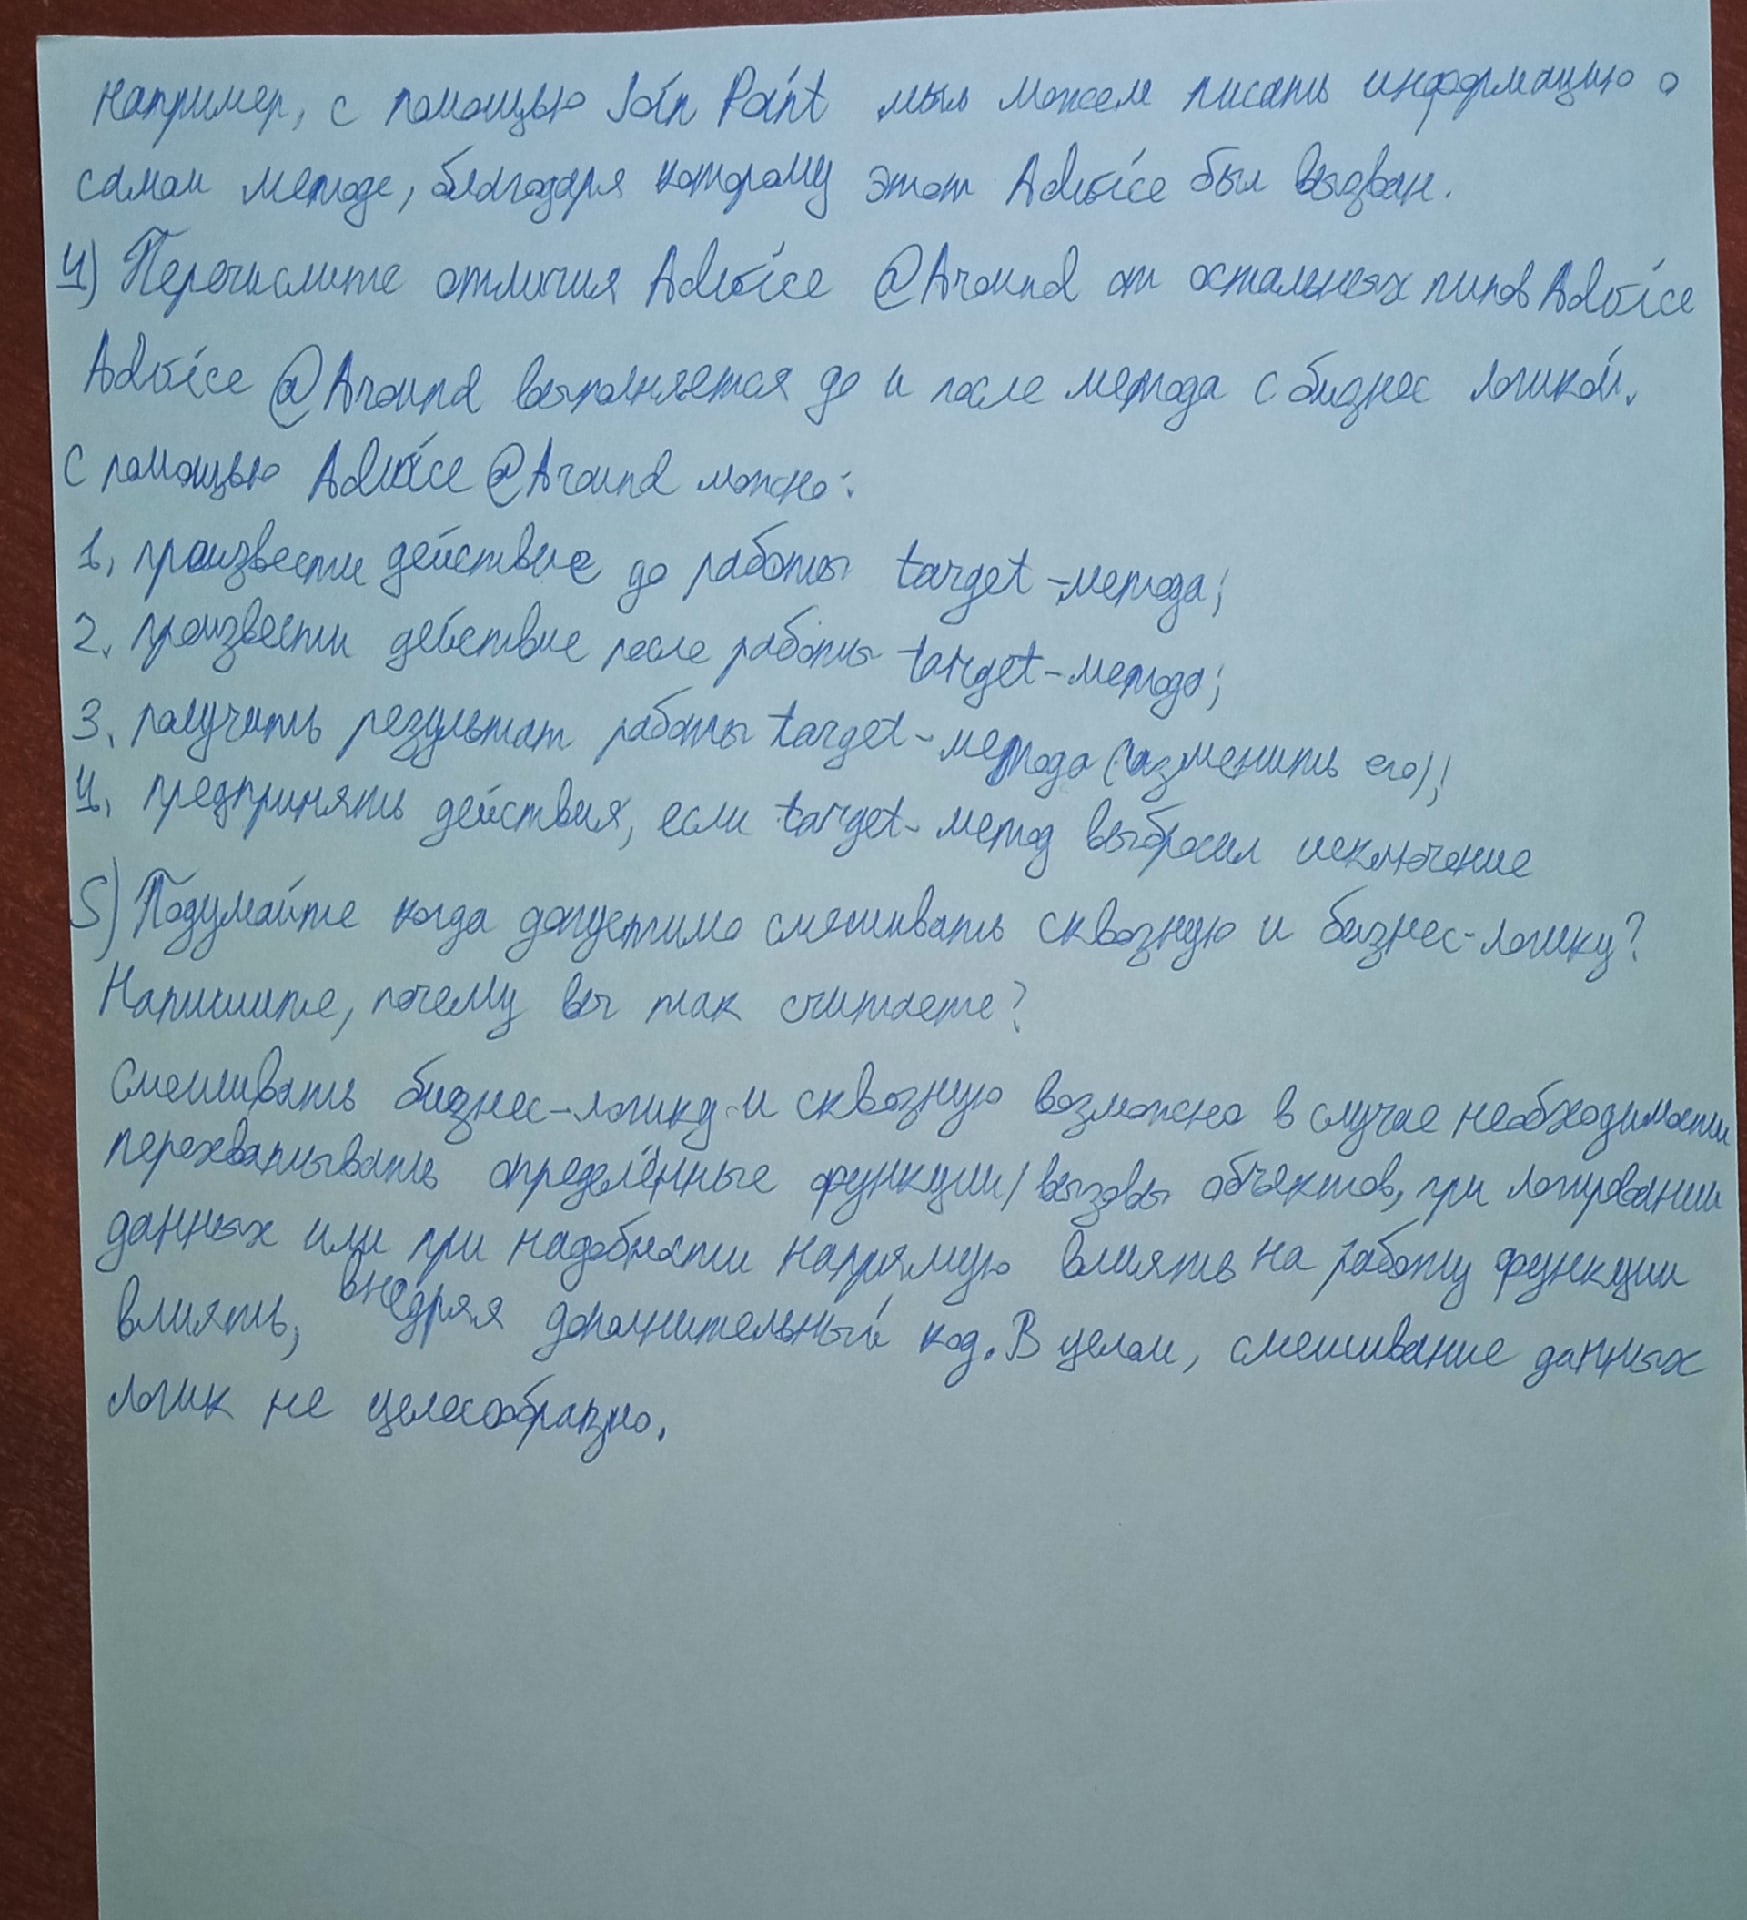 Например, с помощью Join Point мы можем писать информацию о
самом методе, благодаря которому этот Advice был вызван.
4) Перечислите отличия Advice @Around от остальных типов Advice
Advice @Around выполняется до и после метода с бизнес логикой.
С помощью Advice @Around можно:
1. произвести действие до работы target-метода;
2. произвести действие после работы target-метода;
3. получить результат работы target-метода (изменить его);
4. предпринять действия, если target-метод выбросил исключение
5) Подумайте когда допустимо смешивать сквозную и бизнес-логику?
Напишите, почему вы так считаете?
Смешивать бизнес-логику и сквозную возможно в случае необходимости
перехватывать определённые функции/вызовы объектов, при логировании
данных или при надобности напрямую влиять на работу функции
влиять, внедряя дополнительный код. В целом, смешивание данных
логик не целесообразно.